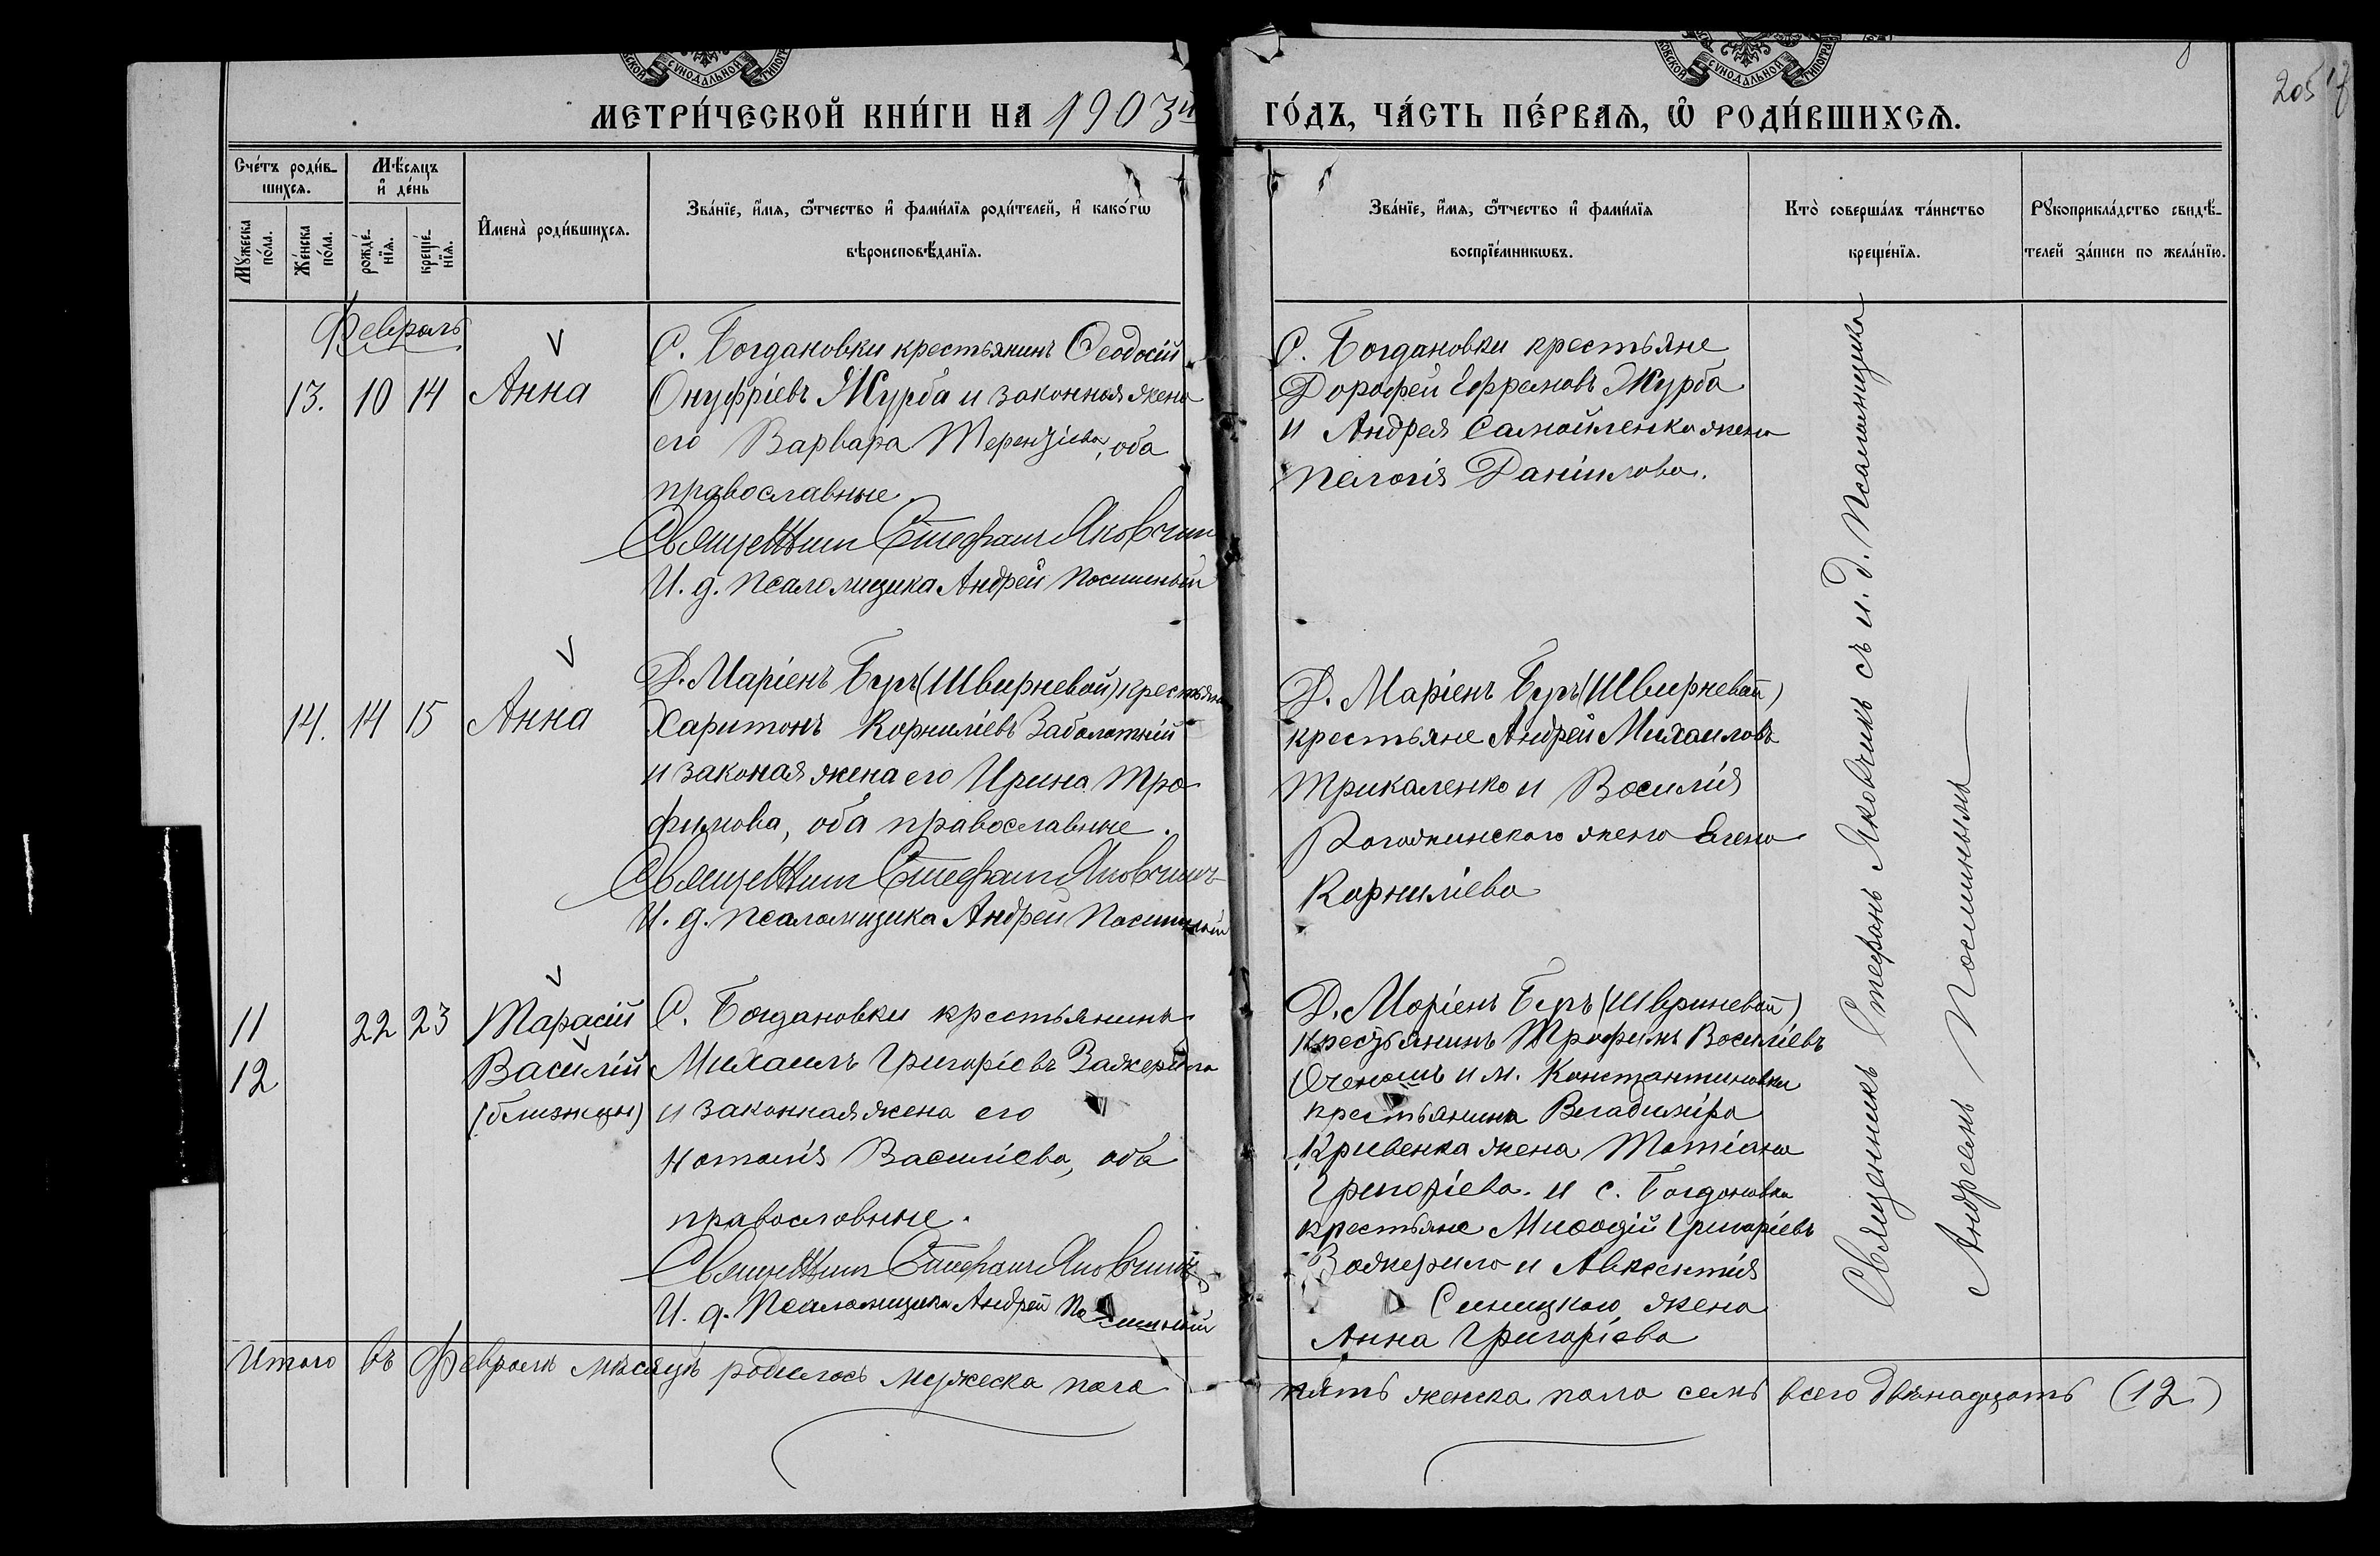 МЕТРИ́ЧЕСКОЙ КНИ́ГИ НА 1903й
ГО́ДЪ, ЧА́СТЬ ПЕ́РВАѦ, Ѽ РОДИ́ВШИХСѦ.
205
Сче́тъ роди́в-
шихсѧ.
Мѣ́сѧцъ
и҆ де́нь
Мꙋжеска
по́ла.
Же́нска
по́ла.
рожде́-
нїѧ.
креще́-
нїѧ.
И҆мена̀ роди́вшихсѧ.
Зва́нїе, и҆́мѧ, ѻ҆́тчество и҆ фами́лїѧ роди́телей, и҆ како́гѡ
вѣроисповѣ́данїѧ.
Зва́нїе, и҆́мѧ, ѻ҆́тчество и҆ фами́лїѧ
воспрїе́мникѡвъ.
Кто̀ соверша́лъ та́инство
креще́нїѧ.
Рꙋкоприкла́дство свидѣ́-
телей за́писи по жела́нїю.
Февраль
13. 10 14 Анна
С. Богдановки крестьянинъ Ѳеодосій
Онуфріевъ Журба и законная жена
его Варвара Терентіева, оба
православные.
Священникъ Стефанъ Яковчикъ
И. д. псаломщика Андрей Посмитный
С. Богдановки крестьяне
Дорофей Ефремовъ Журба
и Андрея Самойленка жена
Пелагія Даніилова.
14. 14 15 Анна
Д. Маріенъ Беръ (Швирневой) крестьяне
Харитонъ Корниліевъ Заболотній
и законая жена его Ирина Тро
фимова, оба православные.
Священникъ Стефанъ Яковчикъ
И. д. псаломщика Андрей
Д. Маріенъ Беръ (Швирневой)
крестьяне Андрей Михаиловъ
Трикаленко и Василія
жена Елена
Корниліева
11 22 23 Тарасій
12 Василій
(близнцы)
С. Богдановки крестьянинъ
Михаилъ Григоріевъ Зажерило
и законная жена его
Наталія Василіева, оба
православные.
Священникъ Стефанъ Яковчикъ
И. д. Псаломщика Андрей
Д. Маріенъ Беръ (Швриневой)
крестьянинъ Трофимъ Василіевъ
и м. Константиновки
крестьянина Владиміра
Кривенка жена Татіана
Григоріева. и с. Богдановки
крестьяне Миѳодій Григоріевъ
Зажерило и Авксентія
Синицкаго жена
Анна Григоріева
Священникъ Стефанъ Яковчикъ съ и. д. Псаломщика
Андреемъ
Итого въ Февралѣ мѣсяцѣ родилось мужеска пола
пять женска пола семь всего двѣнадцать (12)